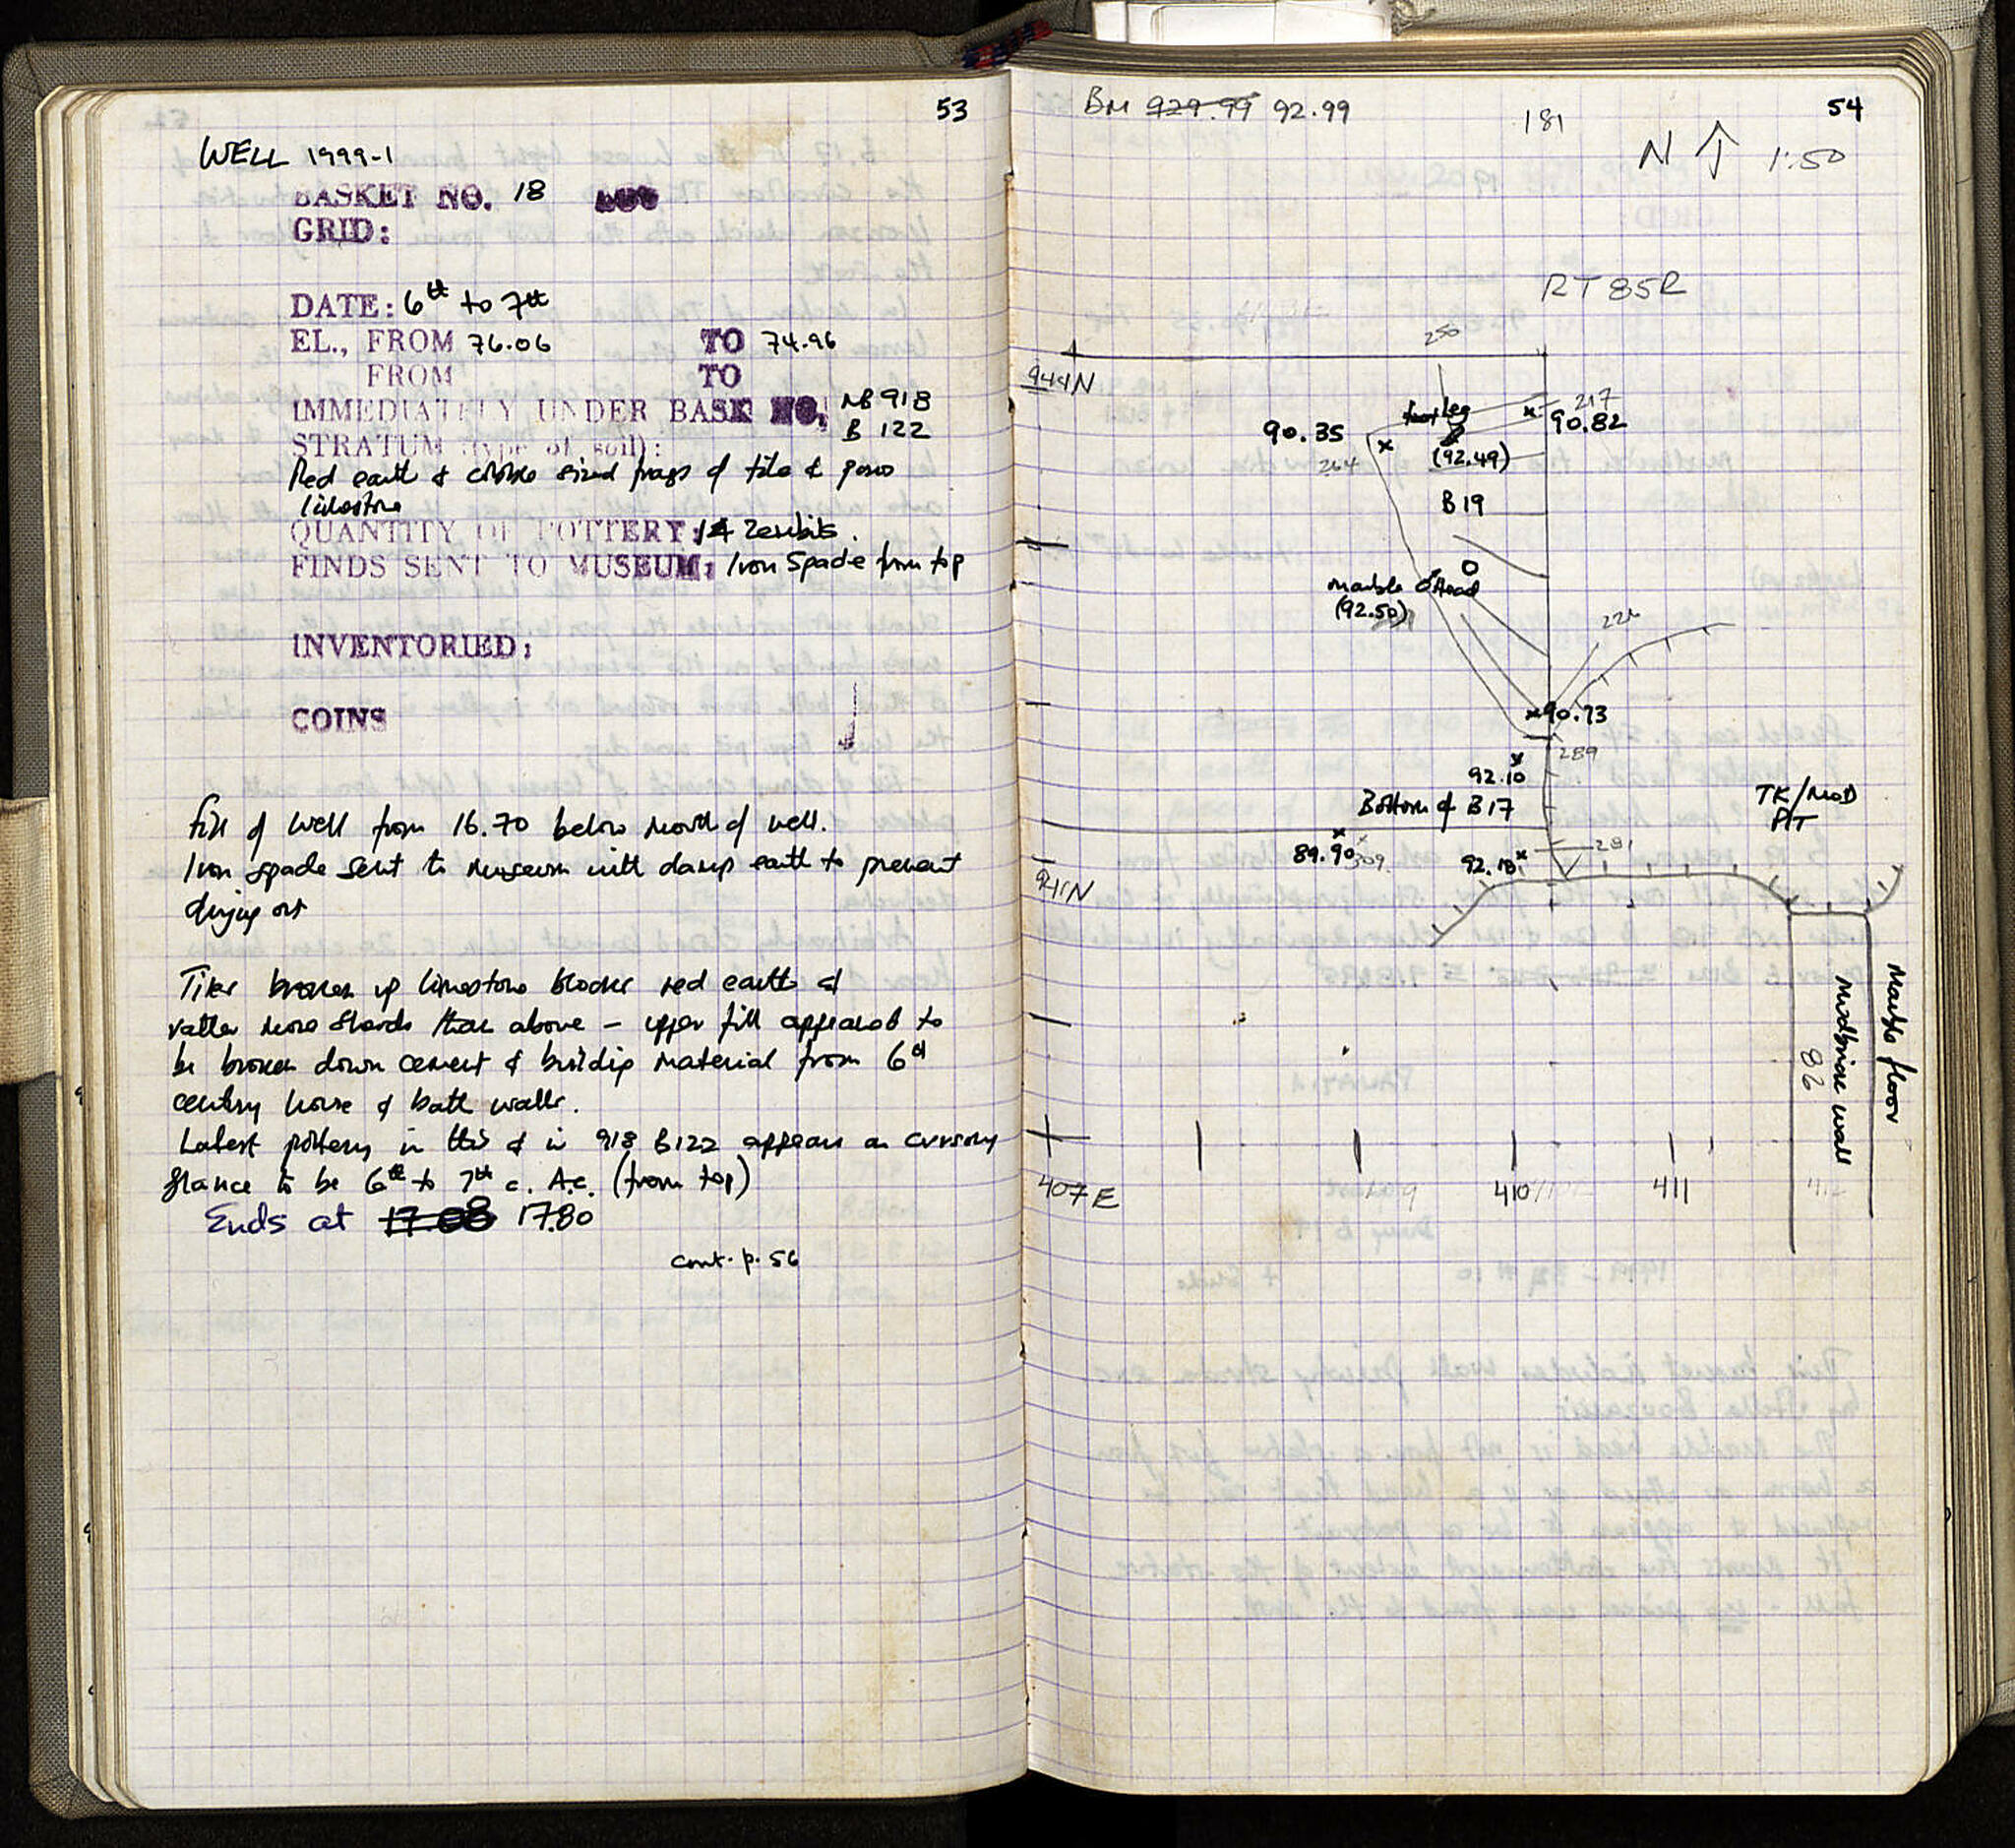 53
WELL 1999-1
BASKET NO. 18
GRID:
DATE: 6th to 7th
EL., FROM 76.06 TO 74.96
FROM TO
IMMEDIATELY UNDER BASK NO. NB 918
B 122
STRATUM (type of soil):
Red earth & cobble sized frags of tile & poros
limestone
QUANTITY OF POTTERY: 14 Zembils.
FINDS SENT TO MUSEUM: Iron Spade from top
INVENTORIED:
COINS
fill of well from 16.70 below mouth of well.
Iron spade sent to museum with damp earth to prevent
drying out
Tiles broken up limestone blocks red earth &
rather more sherds than above – upper fill appeared to
be broken down cement & buildig material from 6th
century house & bath walls.
Latest pottery in this & in 918 B122 appears on cursory
glance to be 6th to 7th c. A.C. (from top)
Ends at 17.08 17.80
cont. p. 56
BM 929.99 92.99
181
54
N 1:50
RT 85R
250
944N
leg
217
90.82
90.35
264
(92.49)
B 19
marble Head
(92.50)
226
90.73
289
92.10
Bottom of B 17
TK/MOD
PIT
89.90
309
92.18
281
941N
Marble floor
Mudbrick wall
82
407E
410
411
412